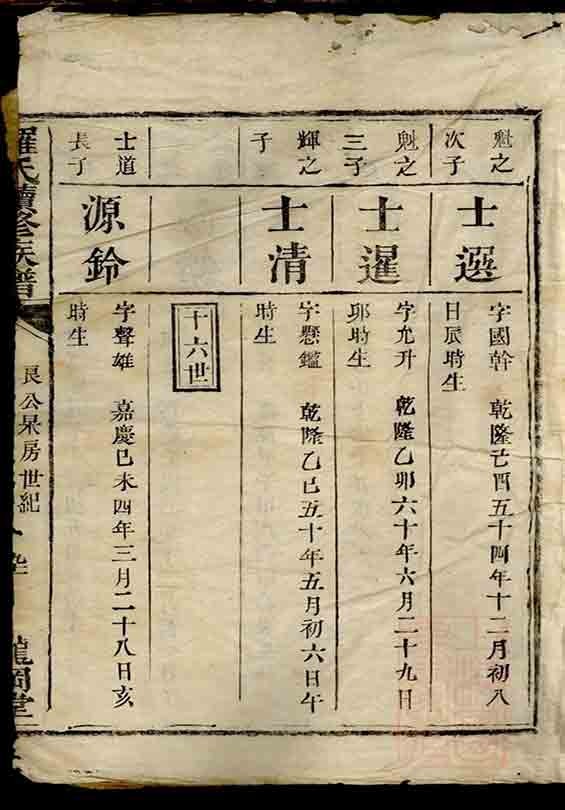 魁之
次子
士選
字國幹 乾隆己酉五十四年十二月初八
日辰時生
魁之
三子
士暹
字允升 乾隆乙卯六十年六月二十九日
卯時生
輝之
子
士清
字懸鑑 乾隆乙巳五十年五月初六日午
時生
十六世
士道
長子
源鈴
字聲雄 嘉慶己未四年三月二十八日亥
時生
羅氏續修族譜
艮公杲房世紀
龍岡堂